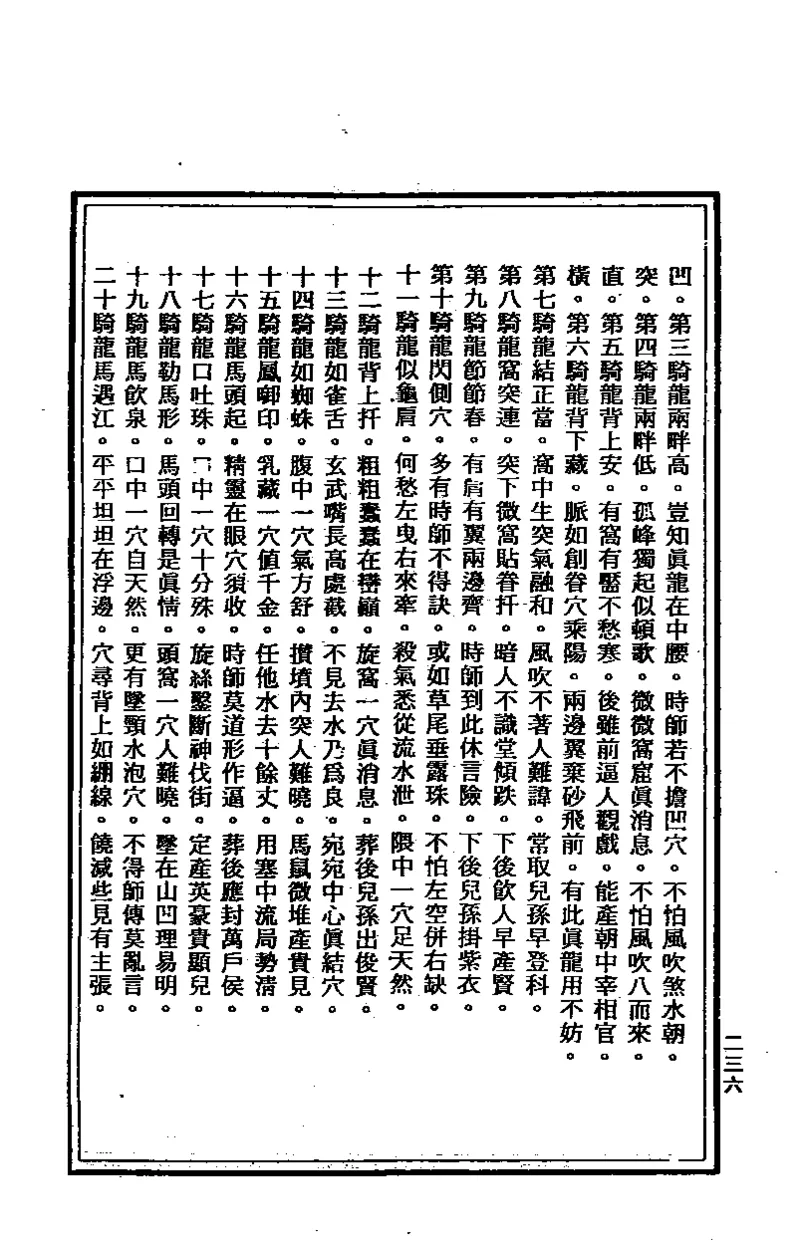 凹。第三騎龍兩畔高。豈知眞龍在中腰。時師若不擔凹穴。不怕風吹煞水朝。
突。第四騎龍兩畔低。孤峰獨起似頓歌。微微窩窟眞消息。不怕風吹八而來。
直。第五騎龍背上安。有窩有靨不愁寒。後雖前逼人觀戲。能產朝中宰相官。
橫。第六騎龍背下藏。脈如創脊穴乘陽。兩邊翼棄砂飛前。有此眞龍用不妨。
第七騎龍結正當。窩中生突氣融和。風吹不著人難諱。常取兒孫早登科。
第八騎龍窩突連。突下微窩貼脊扦。暗人不識堂傾跌。下後飲人早產賢。
第九騎龍節節春。有肩有翼兩邊齊。時師到此休言險。下後兒孫掛紫衣。
第十騎龍閃側穴。多有時師不得訣。或如草尾垂露珠。不怕左空併右缺。
十一騎龍似龜肩。何愁左曳右來牽。殺氣悉從流水泄。隈中一穴足天然。
十二騎龍背上扦。粗粗蠢蠢在巒巔。旋窩一穴眞消息。葬後兒孫出俊賢。
十三騎龍如雀舌。玄武嘴長高處截。不見去水乃爲良。宛宛中心眞結穴。
十四騎龍如蜘蛛。腹中一穴氣方舒。攢墳內突人難曉。馬鼠微堆產貴見。
十五騎龍鳳啣印。乳藏一穴値千金。任他水去十餘丈。用塞中流局勢淸。
十六騎龍馬頭起。精靈在眼穴須收。時師莫道形作逼。葬後應封萬戶侯。
十七騎龍口吐珠。中一穴十分殊。旋絲鑿斷神伐街。定產英豪貴顯兒。
十八騎龍勒馬形。馬頭回轉是眞情。頭窩一穴人難曉。墜在山凹理易明。
十九騎龍馬飲泉。口中一穴自天然。更有墜頸水泡穴。不得師傳莫亂言。
二十騎龍馬遇江。平平坦坦在浮邊。穴尋背上如綳線。饒減些見有主張。
二三六